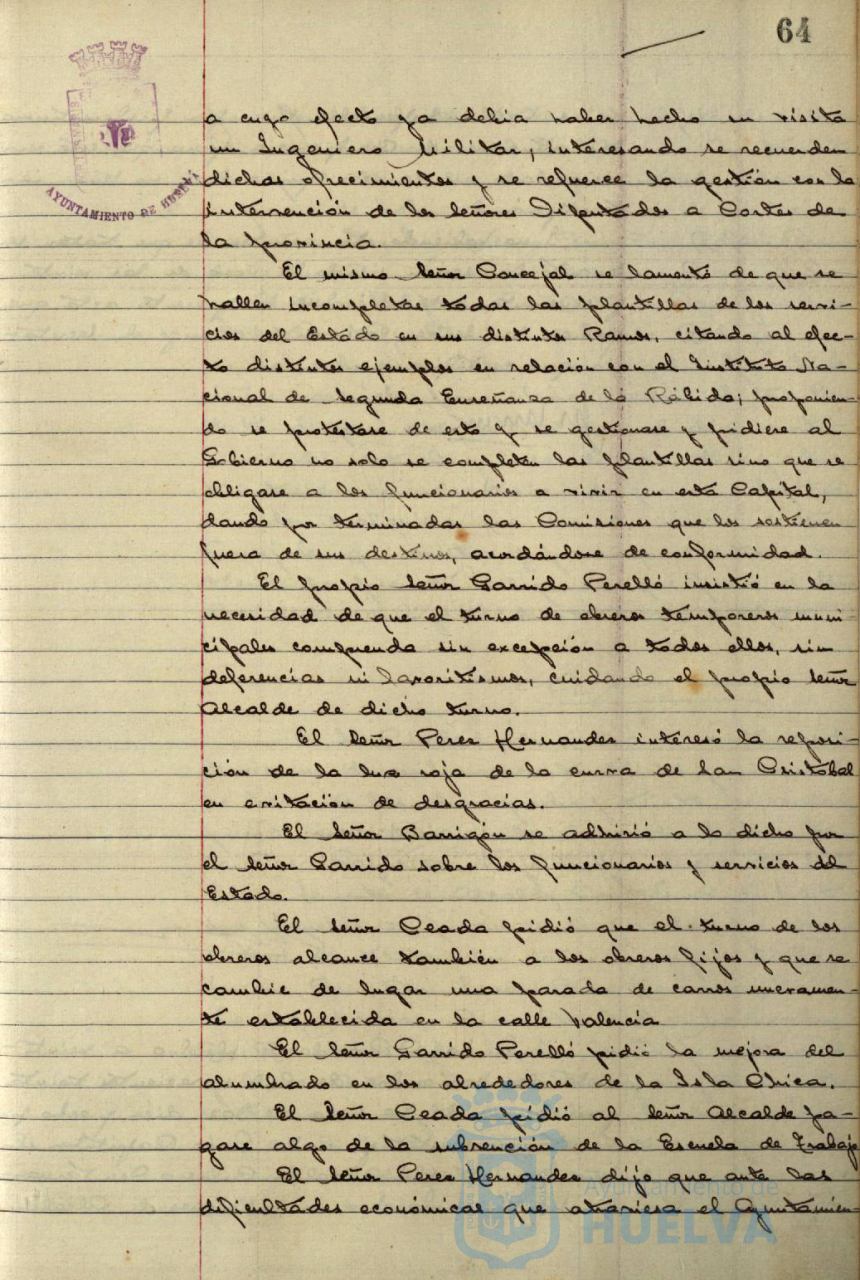 64
AYUNTAMIENTO DE HUELVA
a cuyo efecto ya debia haber hecho su visita
un Ingeniero Militar, interesando se recuerden
dichos ofrecimientos y se refuerce la gestión con la
intervención de los Señores Diputados a Cortes de
la provincia.
El mismo Señor Concejal se lamentó de que se
hallen incompletas todas las plantillas de los servi-
cios del Estado en sus distintos Ramos, citando al efec-
to distintos ejemplos en relación con el Instituto Na-
cional de Segunda Enseñanza de la Rábida; proponien-
do se protestase de esto y se gestionase y pidiese al
Gobierno no solo se completen las plantillas sino que se
obligase a los funcionarios a vivir en esta Capital,
dando por terminadas las Comisiones que los sostienen
fuera de sus destinos, acordándose de conformidad.
El propio Señor Garrido Perelló insistió en la
necesidad de que el turno de obreros temporeros muni-
cipales comprenda sin excepción a todos ellos, sin
deferencias ni favoritismos, cuidando el propio Señor
Alcalde de dicho turno.
El Señor Perez Hernandes interesó la reposi-
ción de la luz roja de la curva de San Cristobal
en evitación de desgracias.
El Señor Barrigón se adhirió a lo dicho por
el Señor Garrido sobre los funcionarios y servicios del
Estado.
El Señor Ceada pidió que el turno de los
obreros alcance también a los obreros fijos y que se
cambie de lugar una parada de carros nuevamen-
te establecida en la calle Valencia
El Señor Garrido Perelló pidió la mejora del
alumbrado en los alrededores de la Isla Chica.
El Señor Ceada pidió al Señor Alcalde pa-
gase algo de la subvención de la Escuela de Trabajo
El Señor Perez Hernandes dijo que ante las
dificultades económicas que atraviesa el Ayuntamien-
Ayuntamiento de
HUELVA